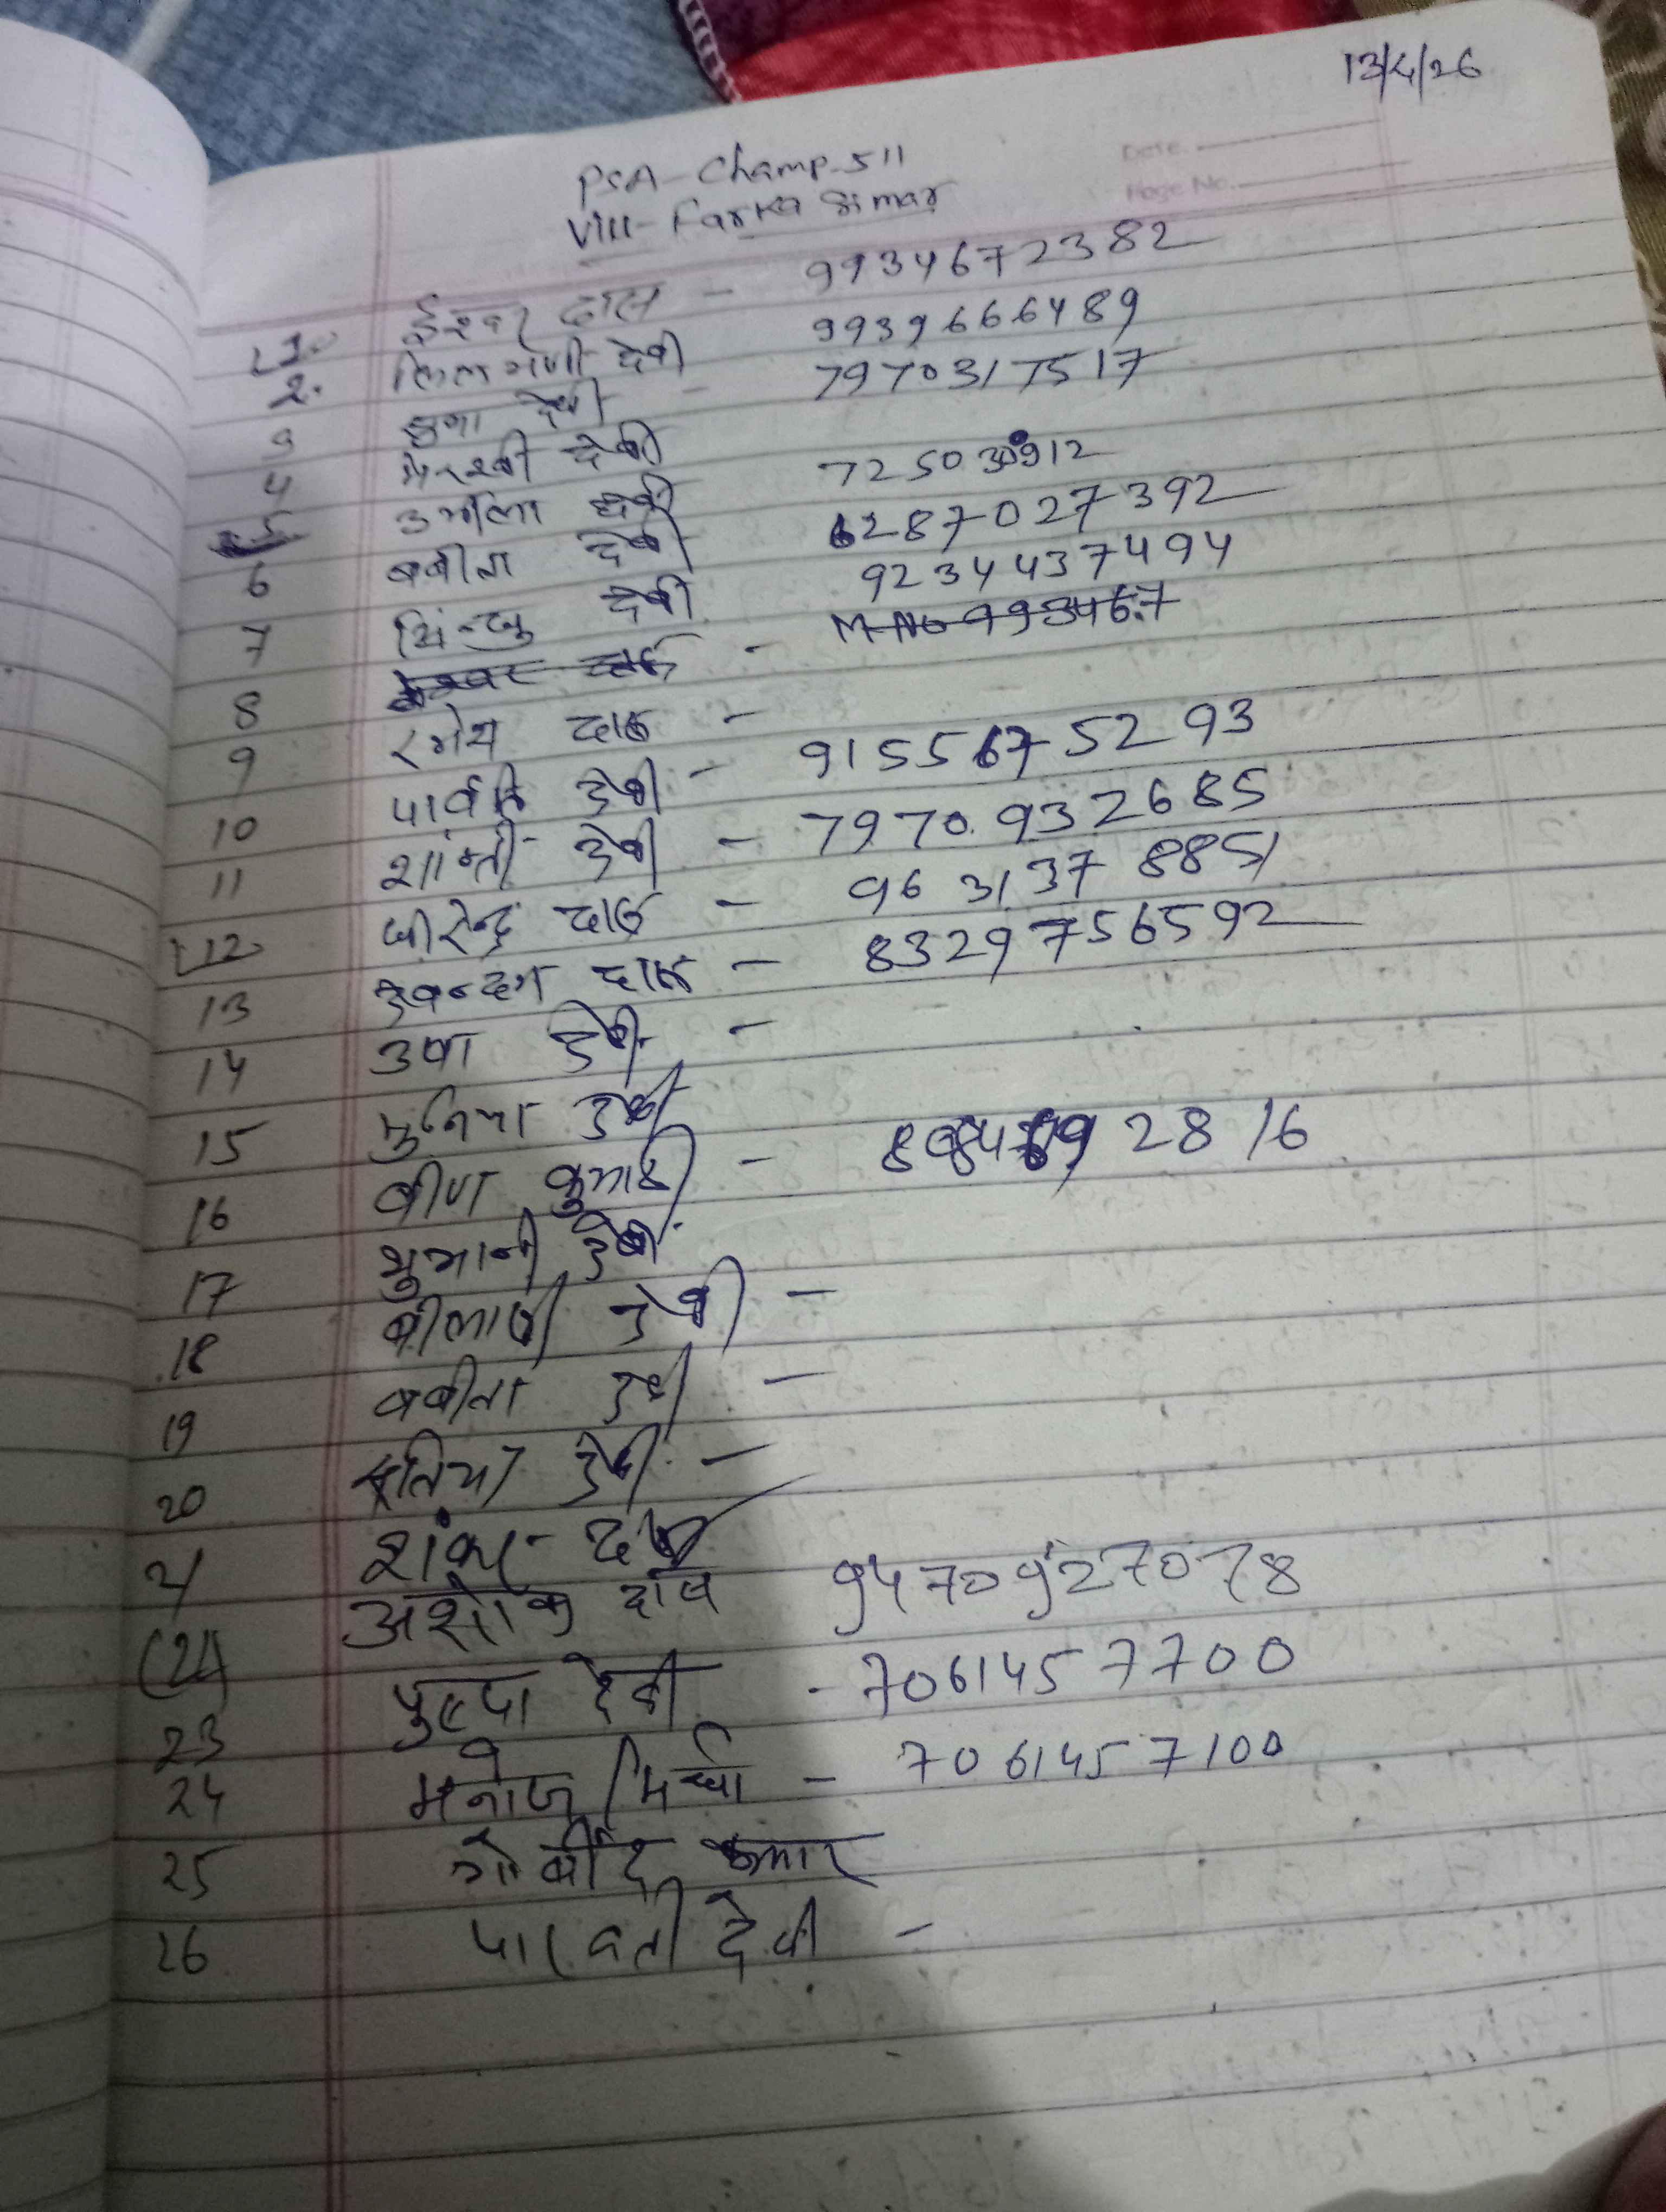 13/4/26
Date.
Page No.
PSA- Champ-511
Vill- Farka Simar
1. ईश्वर दास - 9934672382
2. देवी 9939666489
3 देवी - 7970317517
4 देवी
5 उर्मीला देवी 725030912
6 बबीता देवी 6287027392
7 देवी 9234437494
8 - M No 993467
9 रमेश दास -
10 पार्वती देवी - 9155675293
11 शान्ती देवी - 7970932685
12 बीरेन्द्र दास - 9631378851
13 दास - 8329756592
14 उषा देवी -
15 मुनिया देवी
16 बीणा कुमारी - 2816
17 देवी
18 देवी -
19 बबीता देवी -
20 देवी -
21 शंकर - दास
(21) अशोक दास 9470927078
23 पुष्पा देवी - 7061457700
24 मनोज मिर्धा - 7061457100
25 गोबींद कुमार
26 पारवती देवी -